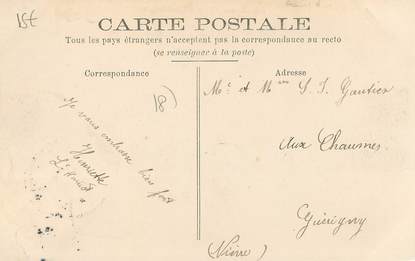 15€
CARTE POSTALE
Tous les pays étrangers n'acceptent pas la correspondance au recto
(se renseigner à la poste)
Correspondance
18)
Je vous embrasse bien fort
Henriette
Adresse
Mr et Mme S. J. Gautier
Aux Chaumes
Guérigny
(Nièvre)